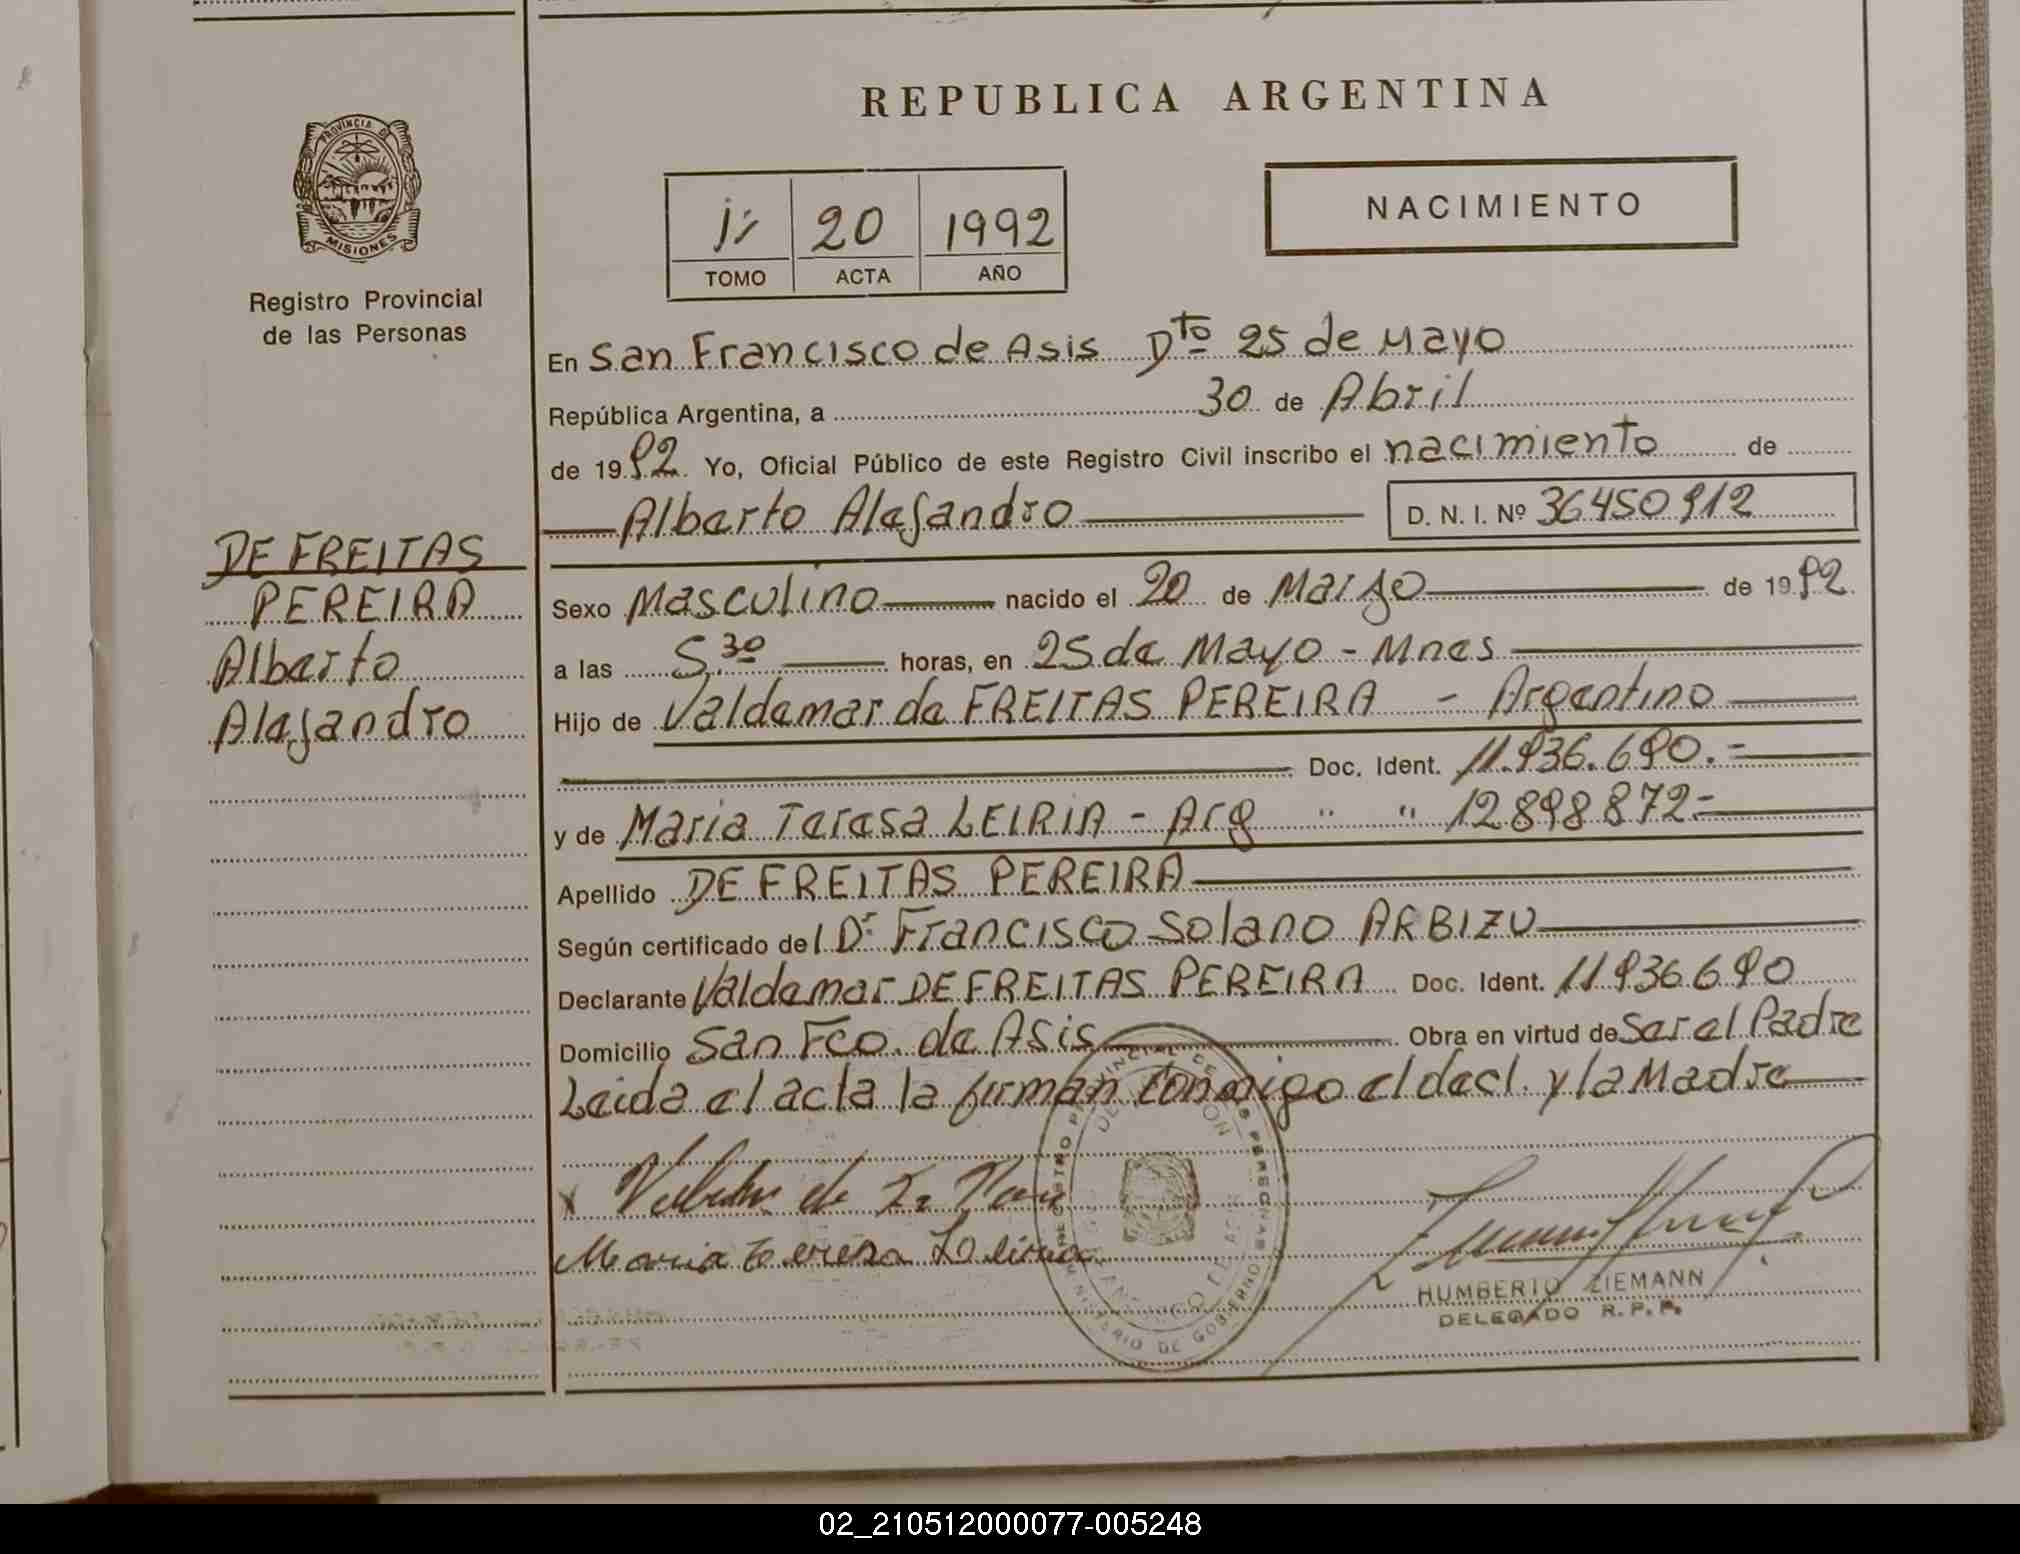 REPUBLICA ARGENTINA
PROVINCIA DE
MISIONES
Registro Provincial
de las Personas
20 1992
TOMO ACTA AÑO
NACIMIENTO
En San Francisco de Asis Dto 25 de Mayo
República Argentina, a 30 de Abril
de 1992. Yo, Oficial Público de este Registro Civil inscribo el nacimiento de
Alberto Alejandro D. N. I. Nº 36450912
DE FREITAS
PEREIRA
Alberto
Alejandro
Sexo Masculino nacido el 20 de Marzo de 1992.
a las 5.30 horas, en 25 de Mayo - Mnes
Hijo de Valdemar de FREITAS PEREIRA - Argentino
Doc. Ident. 11.936.690.=
y de Maria Teresa LEIRIA - Arg " " 12898872=
Apellido DE FREITAS PEREIRA
Según certificado del Dr. Francisco Solano ARBIZU
Declarante Valdemar DE FREITAS PEREIRA Doc. Ident. 11936690
Domicilio San Fco. de Asis Obra en virtud de Ser el Padre
Leida el acta la firman conmigo el decl. y la Madre
Maria teresa
HUMBERTO ZIEMANN
DELEGADO R.P.P.
02_210512000077-005248